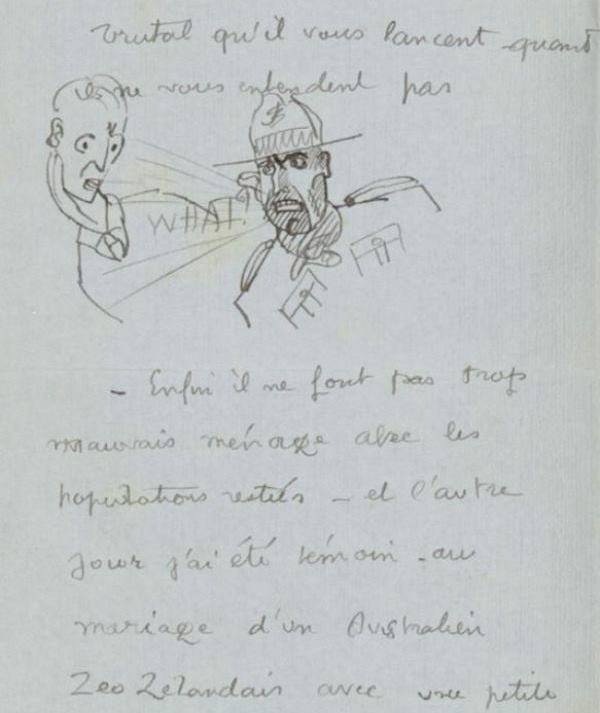 brutal qu'il vous lancent quand
ils ne vous entendent pas
WHAT!
- Enfin il ne font pas trop
mauvais ménage avec les
populations restées - et l'autre
jour j'ai été témoin - au
mariage d'un Australien
Zeo Zelandais avec une petite